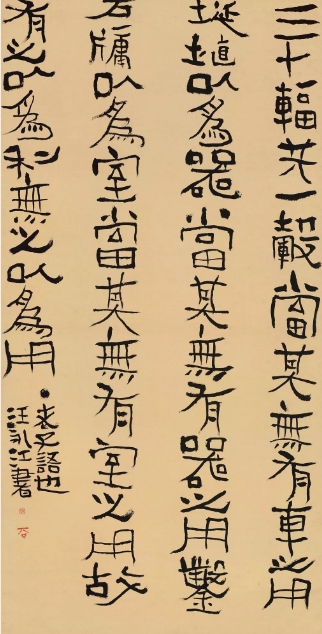 三十輻共一轂當其無有車之用
埏埴以為器當其無有器之用鑿
戶牖以為室當其無有室之用故
有之以為利無之以為用
老子語也
汪永江書